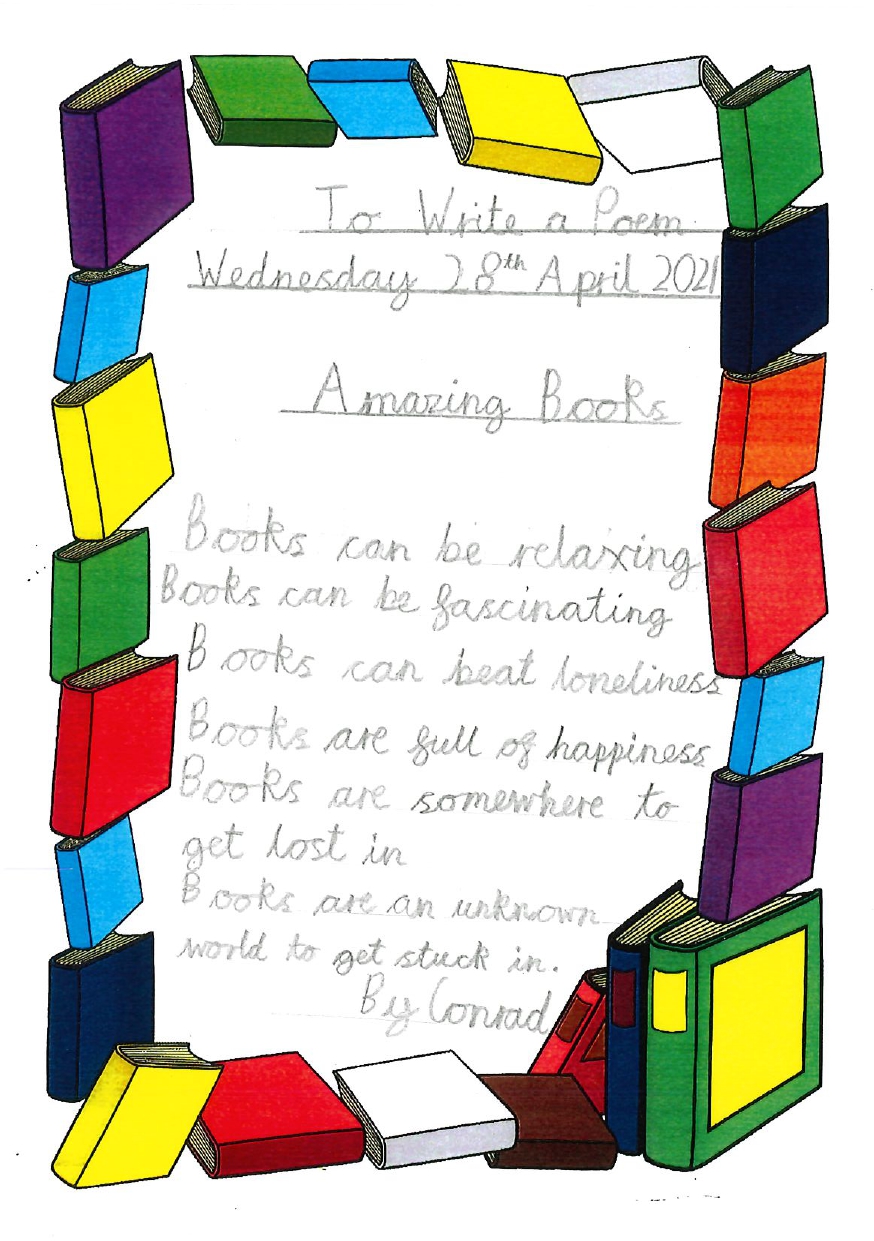 To Write a Poem
Wednesday 28th April 2021
Amazing Books
Books can be relaxing
Books can be fascinating
Books can beat loneliness
Books are full of happiness
Books are somewhere to
get lost in
Books are an unknown
world to get stuck in.
By Conrad